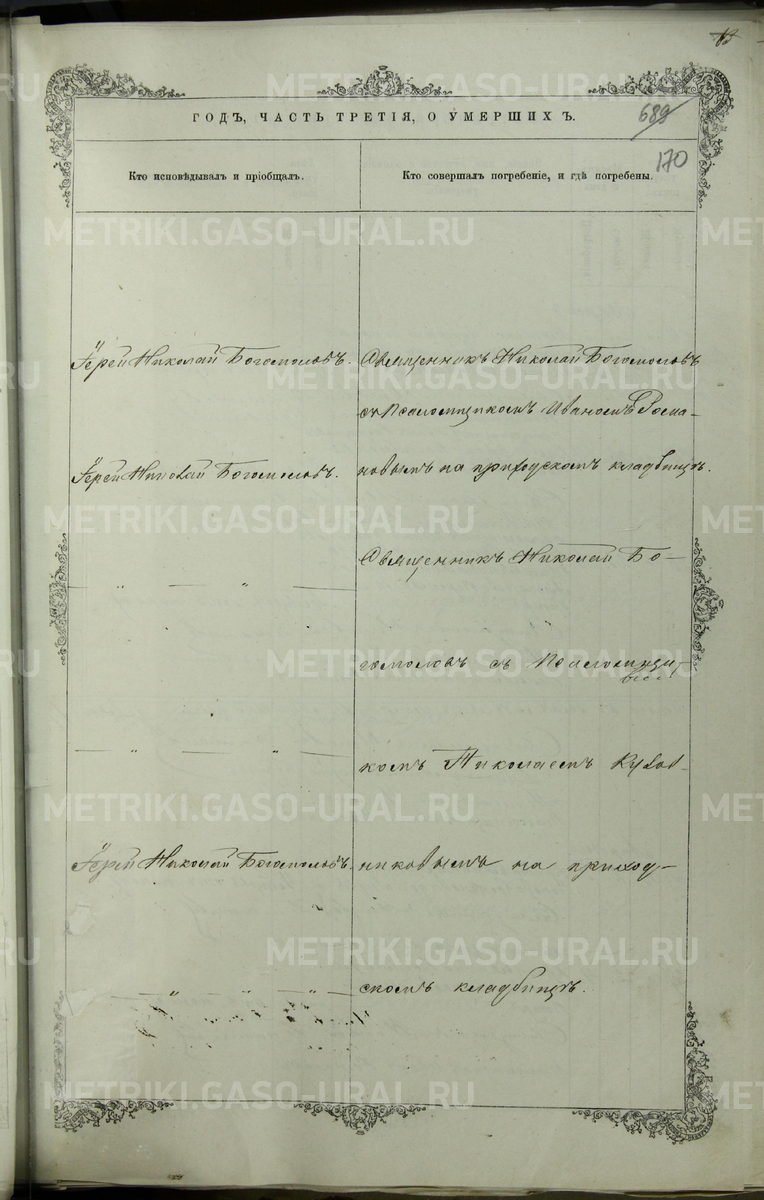 689
170
ГОДЪ, ЧАСТЬ ТРЕТІЯ, О УМЕРШИХЪ.
Кто исповѣдывалъ и пріобщалъ.
Кто совершалъ погребеніе, и гдѣ погребены.
Іерей Николай Богомоловъ.
Священникъ Николай Богомоловъ
съ Псаломщикомъ Иваномъ Рома-
Іерей Николай Богомоловъ.
новымъ на приходскомъ кладбищѣ.
Священникъ Николай Бо-
— „ — „ —
гомоловъ съ Псаломщи-
— „ — „ —
комъ Николаемъ
Іерей Николай Богомоловъ.
никовымъ на приход-
— „ — „ —
скомъ кладбищѣ.
METRIKI.GASO-URAL.RU